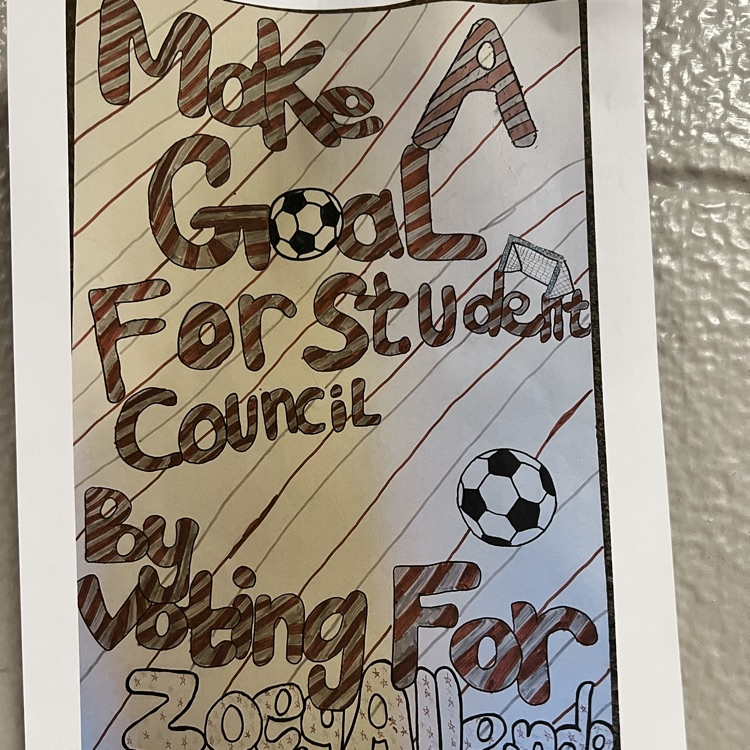 Make A
GoaL
For Student
CounciL
By
Voting For
Zoey